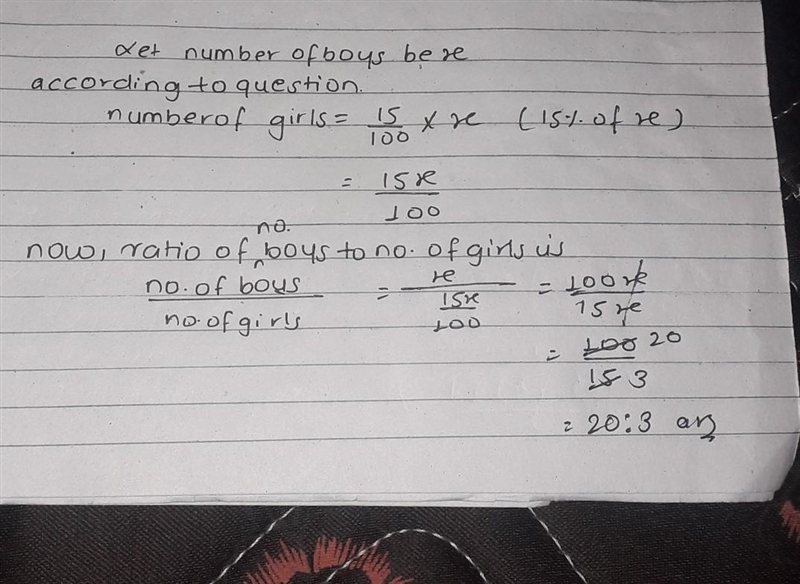 Let number of boys be x
according to question.
number of girls = 15/100 × x (15% of x)
= 15x/100
now, ratio of no. boys to no. of girls is
no. of boys/no. of girls = x/(15x/100) = 100x/15x
= 100/15 20/3
= 20:3 ans